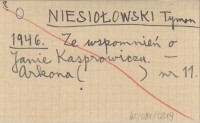 NIESIOŁOWSKI Tymon
1946. Ze wspomnień o
Janie Kasprowiczu. —
Arkona ( ) nr 11.